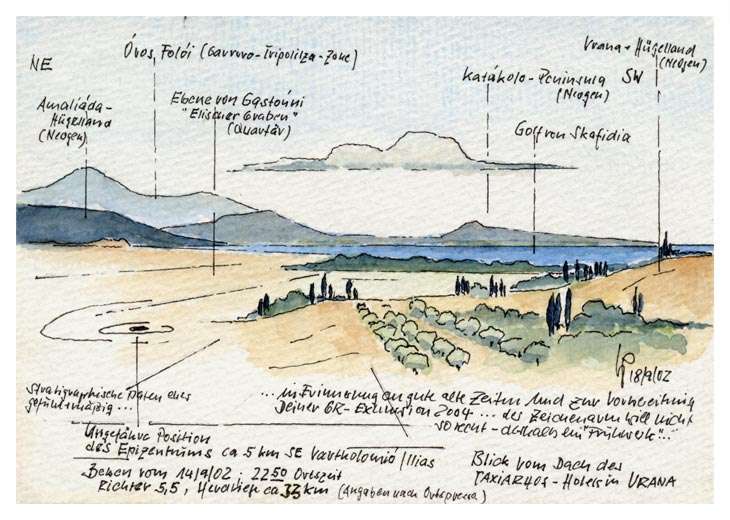 NE
Óros Folói (Gavrovo-Tripolitza-Zone)
Vrana + Hügelland
(Neogen)
Katákolo-Peninsula SW
(Neogen)
Amaliáda-
Hügelland
(Neogen)
Ebene von Gastoúni
"Elischer Graben"
(Quartär)
Golf von Skafidia
18/9/02
Stratigraphische Daten eher
gefühlsmäßig...
...in Erinnerung an gute alte Zeiten und zur Vorbereitung
Deiner GR-Exkursion 2004 ... der Zeichenarm will nicht
so recht - deshalb ein "Frühwerk"...
Ungefähre Position
des Epizentrums ca 5 km SE Vartholomió/Ilias
Beben vom 14/9/02 : 22 50 Ortszeit
Richter 5,5, Herdtiefe ca 33 km (Angaben nach Ortspresse)
Blick vom Dach des
TAXIARHOS-Hotels in VRANA